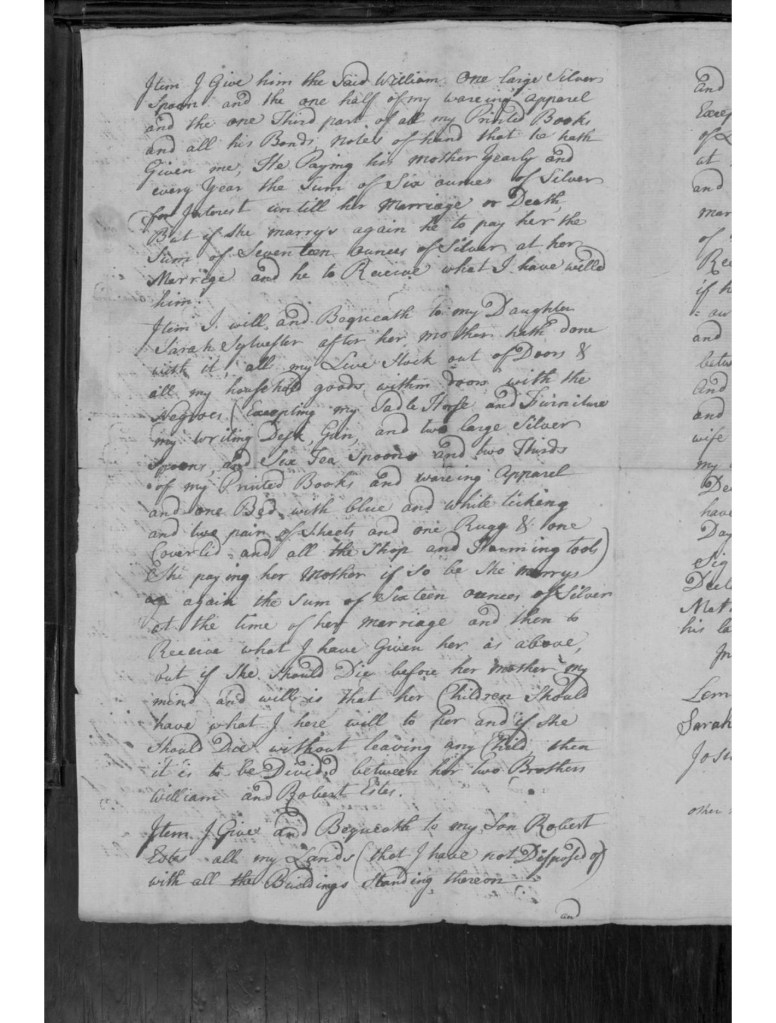 Item I Give him the Said William One large Silver
Spoon and the one half of my wareing apparel
and the one Third part of all my Printed Books
and all his Bonds, Notes of hand that he hath
Given me, He Paying his Mother Yearly and
every Year the Sum of Six ounces of Silver
for Interest untill her Marriage or Death,
But if she marrys again he to pay her the
Sum of Seventeen ounces of Silver at her
Marrige and he to Receive what I have willed
him.
Item I will and Bequeath to my Daughter
Sarah Sylvester after her mother hath done
with it, all my Live Stock out of Doors &
all my household goods within doors with the
Negroes, (Excepting my Sadle Horse and Furniture
my writing Desk, Gun, and two large Silver
Spoons, and Six Tea Spoons and two Thirds
of my Printed Books and wareing Apparel
and one Bed with blue and white ticking
and two pair of Sheets and one Rugg & one
Coverled and all the Shop and Farming tools)
She paying her Mother if so be She marrys
again the Sum of Sixteen ounces of Silver
at the time of her marriage and then to
Receive what I have Given her as above,
but if She should Die before her mother my
mind and will is that her Children Should
have what I here will to her and if She
Should Die without leaving any Child, then
it is to be Divided between her two Brothers
William and Robert Estes.
Item I Give and Bequeath to my Son Robert
Estes all my Lands (that I have not Disposed of)
with all the Buildings Standing thereon
and
and
Excep
of L
at
and
mar
of
Rec
if h
and
betw
and
and
wife
my
De
have
Day
Sig
Decl
his la
In
Lem
Sarah
Josi
other